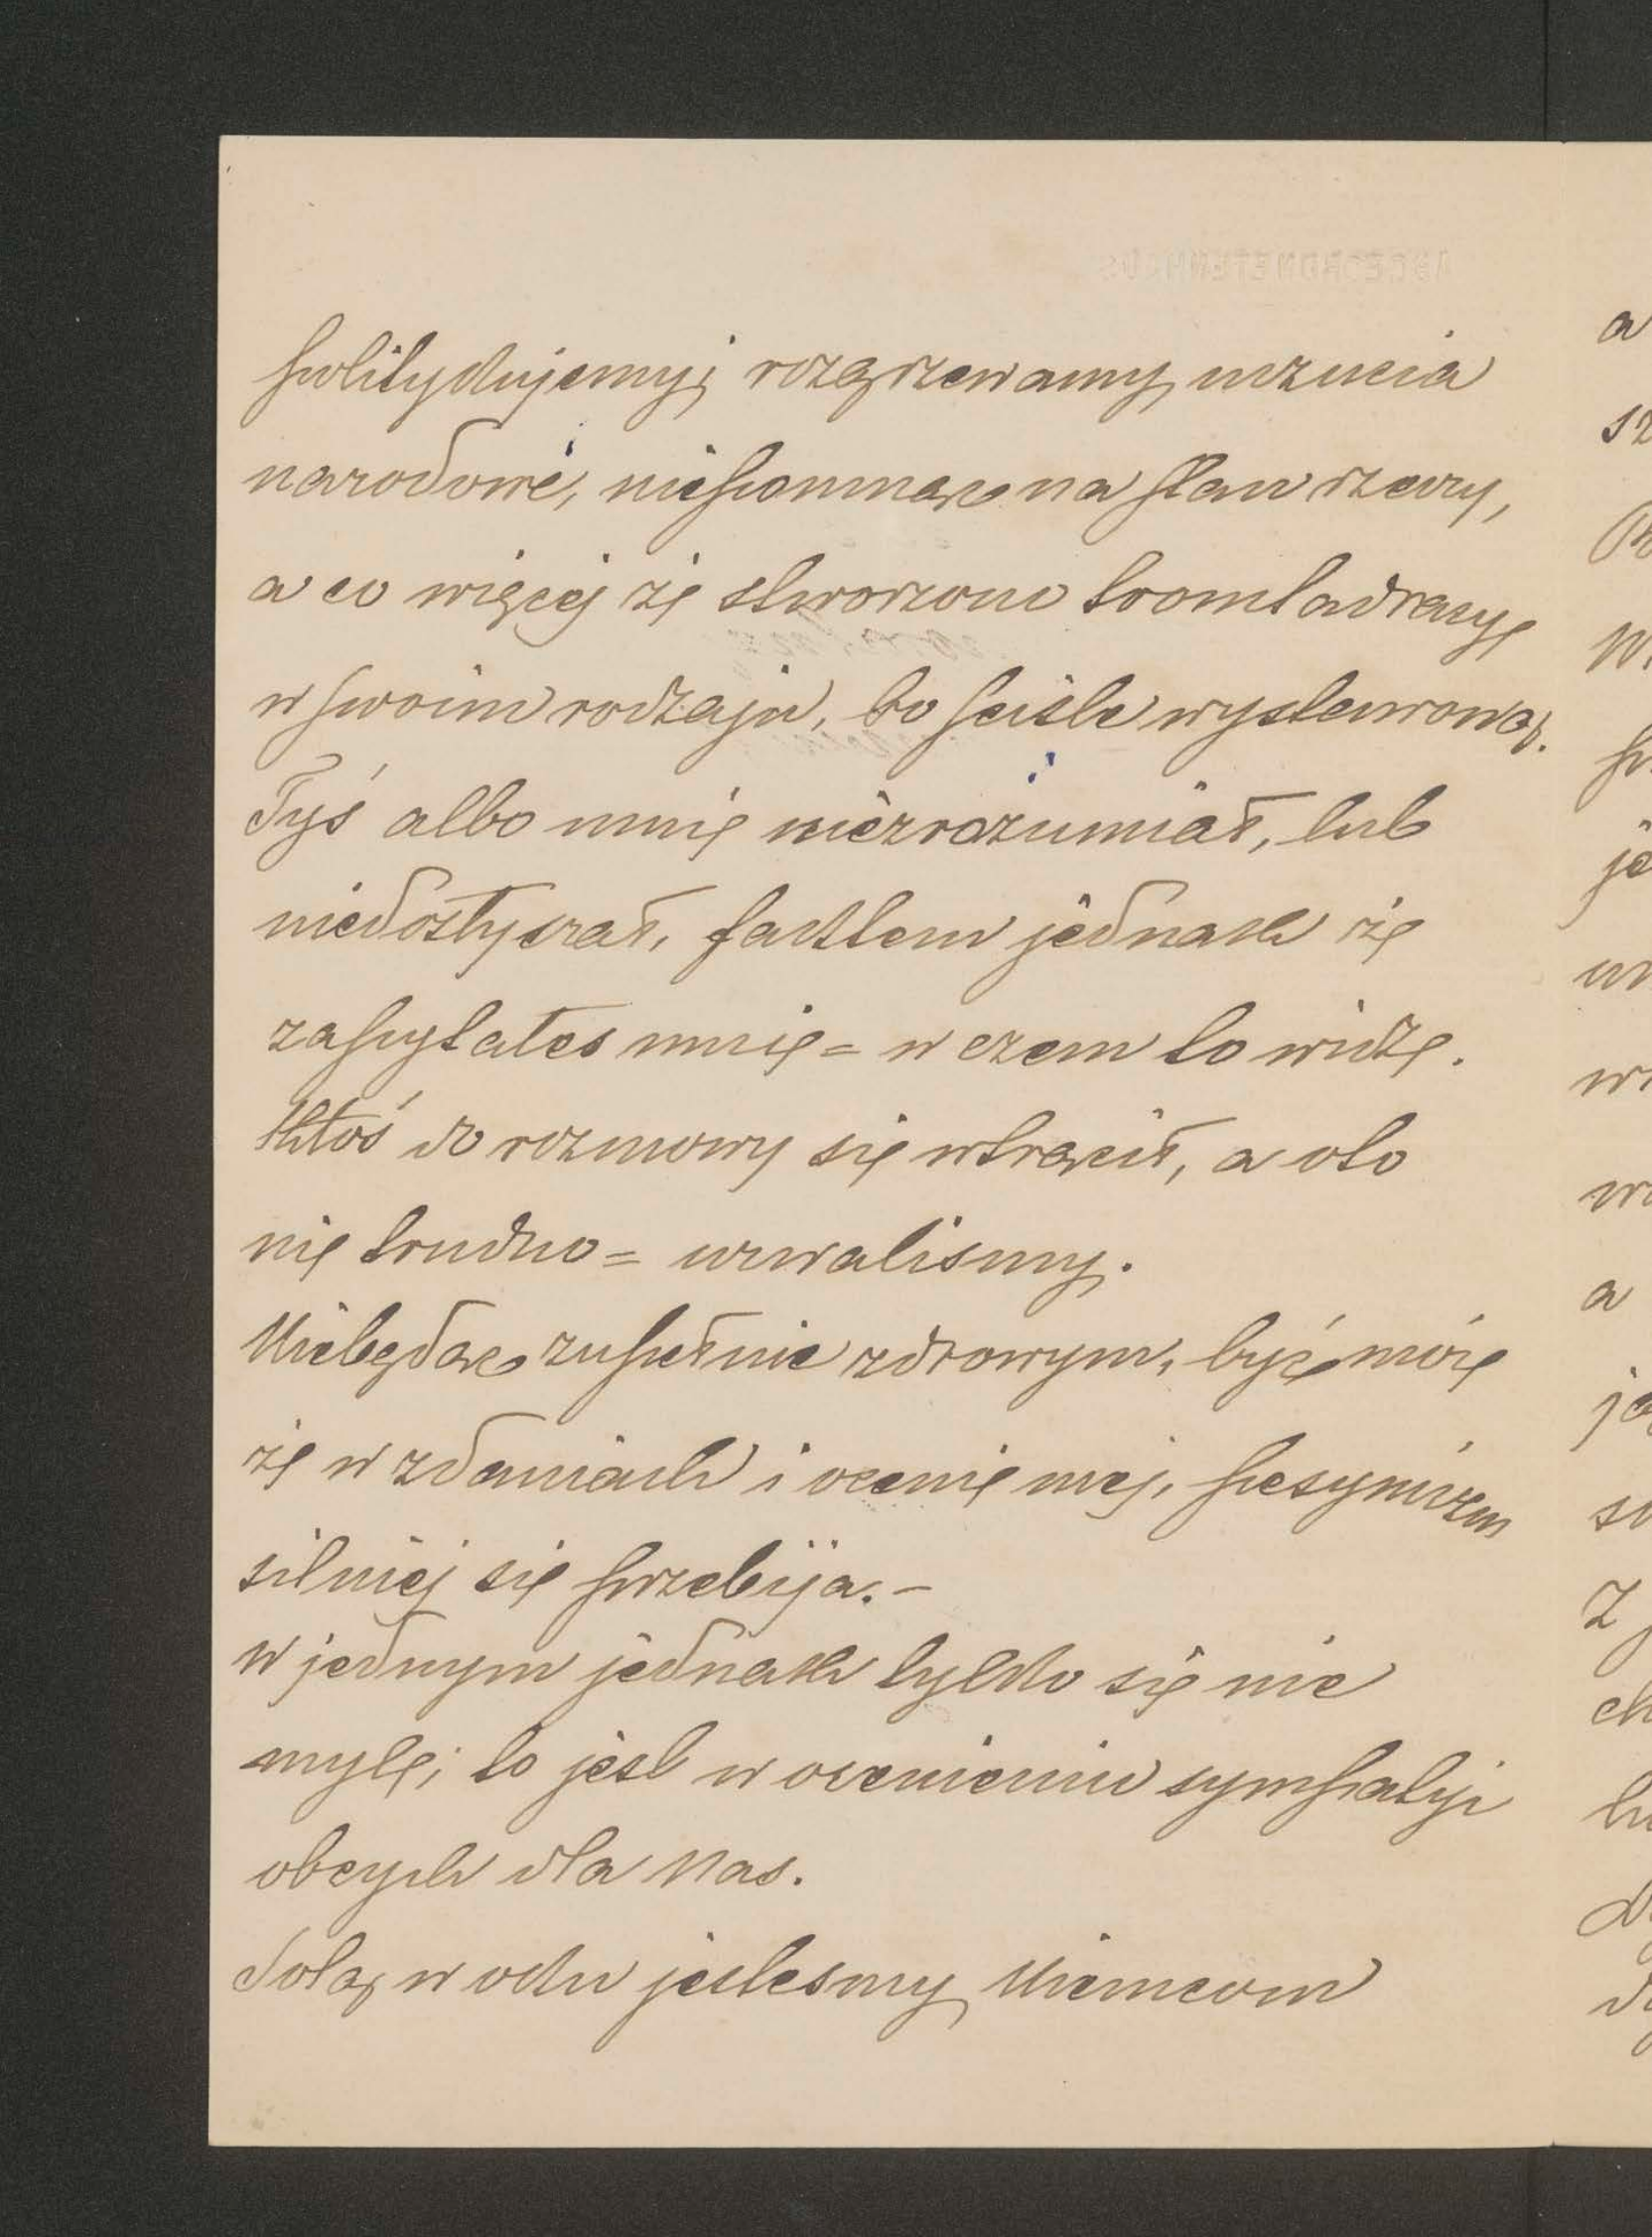 ABGEORDNETENHAUS
politykujemy; rozgrzewamy uczucia
narodowe, niepomnąc na stan rzeczy,
a co więcej że stworzono tromtadracyę
w swoim rodzaju, bo ściśle wystemrowaną.
Tyś albo mnię niezrozumiał, lub
niedosłyszał, faktem jednak żę
zapytałes mnię = w czem to widzę.
Ktoś do rozmowy się wtrącił, a oto
nię trudno = urwalismy.
Niebędąc zupełnie zdrowym, być możę
żę w zdaniach i ocenię mej, pesymizm
silniej się przebija. -
W jednym jednak tylko się nie
mylę; to jest w ocenieniu sympatyi
obcych dla Nas.
Solą w oku jestesmy Niemcom